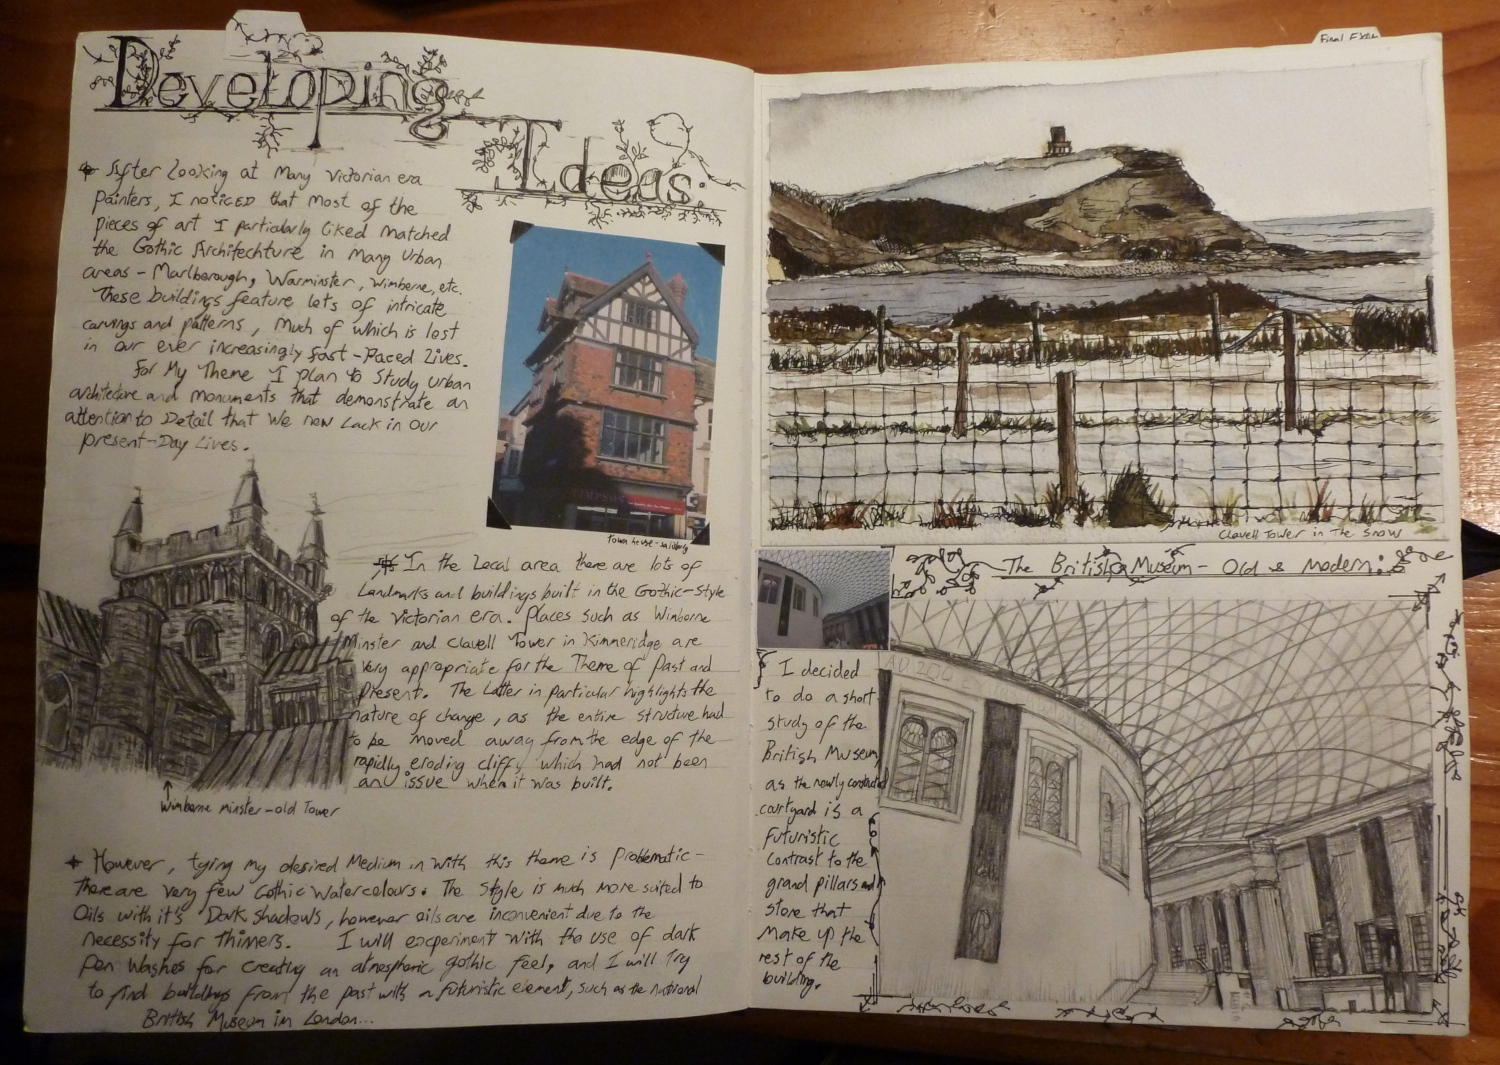 Developing
Ideas:
After looking at Many Victorian era
Painters, I noticed that most of the
pieces of art I particularly liked matched
the Gothic Architechture in Many Urban
areas - Marlborough, Warminster, Wimberne, etc.
These buildings feature lots of intricate
carvings and patterns, Much of which is lost
in our ever increasingly fast-Paced Lives.
For My Theme I plan to Study urban
architecture and monuments that demonstrate an
attention to Detail that we now Lack in our
present-Day Lives.
Town house - salisbury
In the Local area there are lots of
Landmarks and buildings built in the Gothic-Style
of the Victorian era. Places such as Wimborne
Minster and Clavell Tower in Kimmeridge are
Very appropriate for the Theme of Past and
Present. The Latter in particular highlights the
nature of change, as the entire structure had
to be moved away from the edge of the
rapidly eroding cliff, which had not been
an issue when it was built.
Wimborne minster - old Tower
However, tying my desired Medium in with this theme is Problematic -
there are very few Gothic Watercolours. The Style is much more suited to
Oils with it's Dark Shadows, however oils are inconvenient due to the
necessity for thinners. I will experiment with the use of dark
Pen Washes for creating an atmospheric gothic feel, and I will Try
to find buildings from the past with a futuristic element, such as the national
British Museum in London...
Final Exam
Clavell Tower in The Snow
The British Museum - Old & Modern:
I decided
to do a short
study of the
British Museum,
as the newly constructed
courtyard is a
futuristic
contrast to the
grand pillars and
stone that
Make up the
rest of the
building.